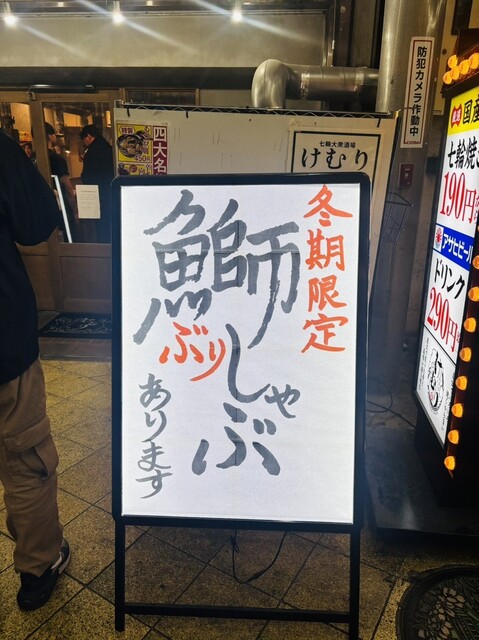 冬期限定
鰤しゃぶ
ぶり
あります
七輪大衆酒場
けむり
四大名
防犯カメラ作動中
国産
七輪焼き
190円
アサヒビール
ドリンク
290円